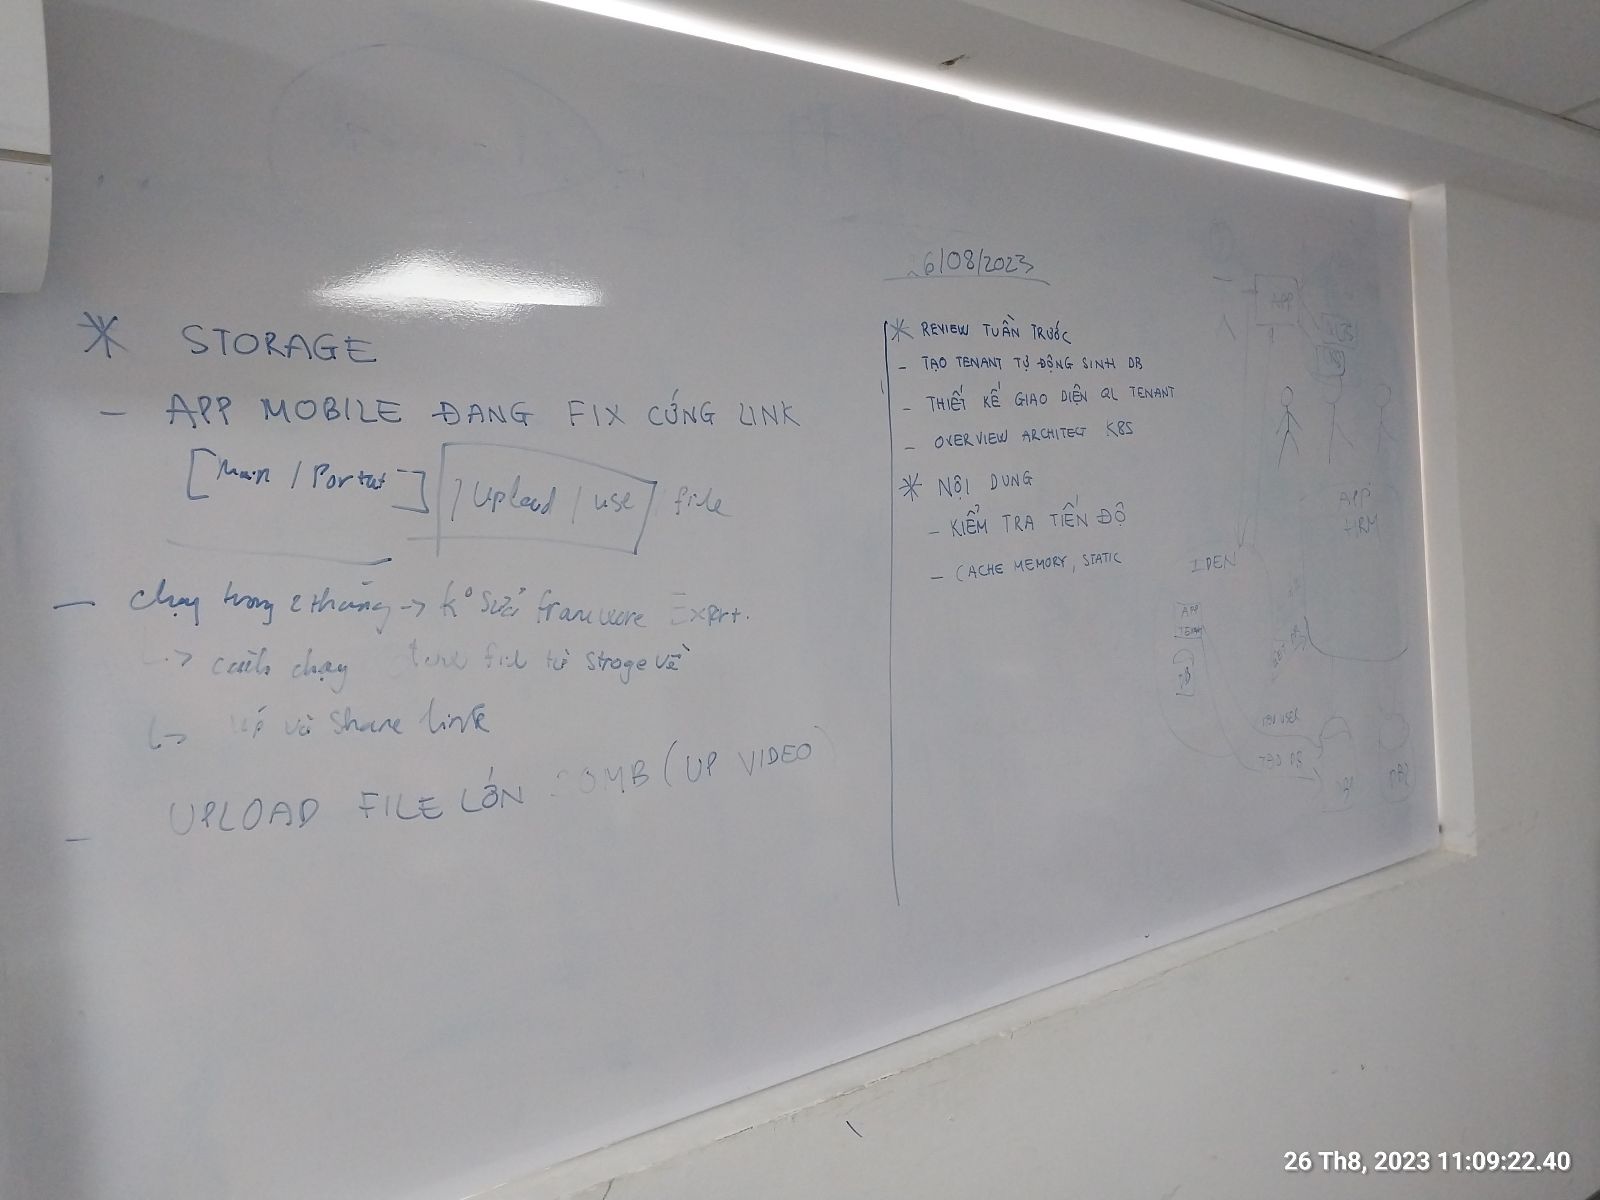 * STORAGE
- APP MOBILE ĐANG FIX CỨNG LINK
[Main / Portal] / Upload / use / file
- chạy trong 2 tháng -> k° sửa
-> chạy file từ Stroge về
-> và Share link
- UPLOAD FILE LỚN 0MB (UP VIDEO)
6/08/2023
* REVIEW TUẦN TRƯỚC
- TẠO TENANT TỰ ĐỘNG SINH DB
- THIẾT KẾ GIAO DIỆN QL TENANT
- OVERVIEW ARCHITECT K8S
* NỘI DUNG
- KIỂM TRA TIẾN ĐỘ
- CACHE MEMORY, STATIC
APP
APP
HRM
IDEN
APP
DB
TẠO DB
DB1
DB2
26 Th8, 2023 11:09:22.40